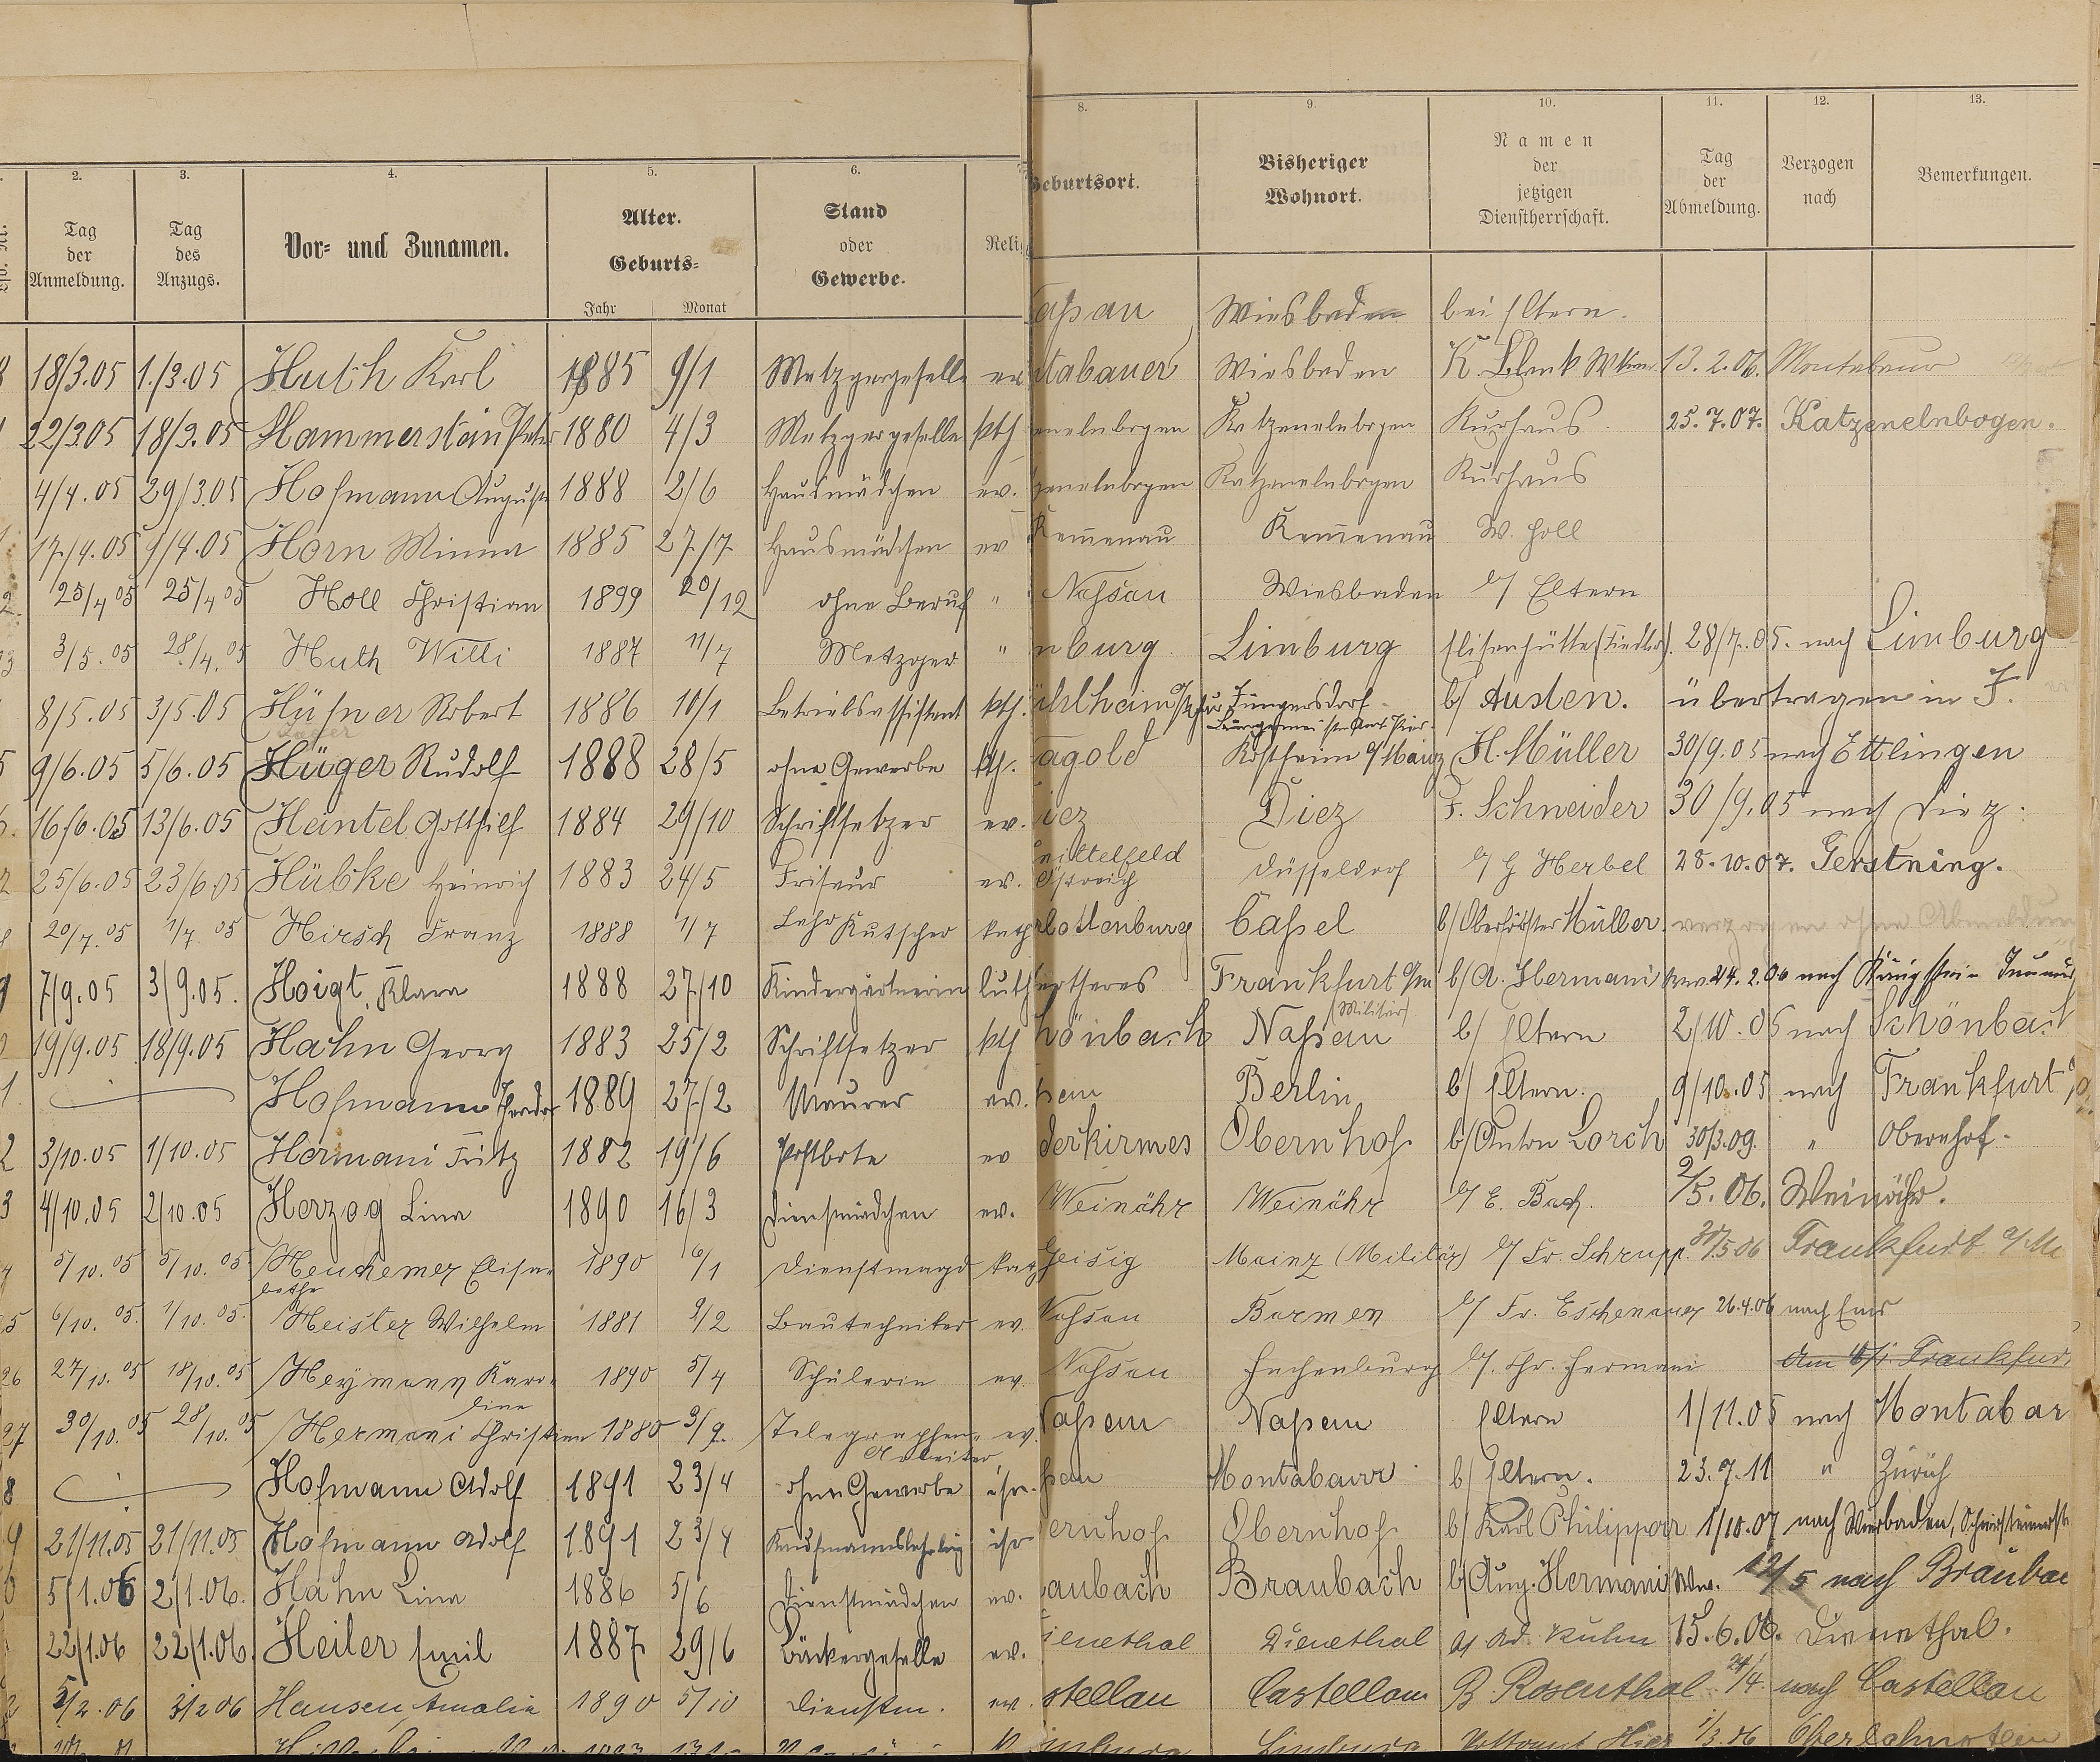 2. 3. 4. 5. 6.
Tag der Anmeldung. Tag des Anzugs. Vor- und Zunamen. Alter. Geburts- Jahr Monat Stand oder Gewerbe.
18/3.05 1./3.05 Huth Karl 1885 9/1 Metzgergeselle ev
22/3.05 18/3.05 Hammerstein Peter 1880 4/3 Metzgergeselle kth
4/4.05 29/3.05 Hofmann Auguste 1888 2/6 Hausmädchen ev.
17./4.05 1/4.05 Horn Minna 1885 27/7 Hausmädchen ev
25/4 05 25/4 05 Holl Christian 1899 20/12 ohne Beruf "
3/5. 05 28/4. 05 Huth Willi 1887 11/7 Metzger "
8/5.05 3/5.05 Hüfner Robert 1886 10/1 Betriebsassistent kth.
9/6.05 5/6.05 Hüger Rudolf 1888 28/5 ohne Gewerbe kth.
16/6.05 13/6.05 Heintel Gotthilf 1884 29/10 Schriftsetzer ev.
25/6.05 23/6.05 Hübke Heinrich 1883 24/5 Friseur ev.
20/7. 05 1/7. 05 Hirsch Franz 1888 1/7 Lehr Kutscher kath
7/9.05 3/9.05. Hoigt, Klara 1888 27/10 Kindergärtnerin luth
19/9.05 18/9.05 Hahn Georg 1883 25/2 Schriftsetzer kth
Hofmann Theodor 1889 27/2 Maurer ev.
3/10.05 1/10.05 Hermani Fritz 1882 19/6 Postbote ev
4/10.05 2/10.05 Herzog Lina 1890 16/3 Dienstmädchen ev.
5/10. 05 5/10. 05 Heuchemer Elisa-
bethe 1890 6/1 Dienstmagd kat
6/10. 05. 1/10. 05. Heister Wilhelm 1881 9/2 Bautechniker ev.
26 27/10. 05 18/10. 05 Heymann Karo-
line 1890 5/4 Schülerin ev.
27 30/10. 05 28/10. 05 Hermani Christian 1880 3/9. Telegraphen-
Arbeiter ev.
8 Hofmann Adolf 1891 23/4 ohne Gewerbe isr.
21/11.05 21/11.05 Hofmann Adolf 1891 23/4 Kaufmannslehrling isr
5/1.06 2/1.06. Hahn Lina 1886 5/6 Dienstmädchen ev.
22/1.06 22/1.06. Heiler Emil 1887 29/6 Bäckergeselle ev.
5/2.06 3/2 06 Hansen Amalie 1890 5/10 Dienstm. ev.
8. 9. 10. 11. 12. 13.
Geburtsort. Bisheriger Wohnort. Namen der jetzigen Dienstherrschaft. Tag der Abmeldung. Verzogen nach Bemerkungen.
aßau Wiesbaden bei Eltern.
tabauer Wiesbaden K. Blank Wtw. 13.2.06. Montabaur
enelnbogen Katzenelnbogen Kurhaus 25.7.07. Katzenelnbogen.
zenelnbogen Katzenelnbogen Kurhaus
Kem̄enau Kem̄enau W. Holl
Nassau Wiesbaden b/ Eltern
nburg Limburg Elisenhütte (Fiedler). 28/7.05. nach Limburg
b/ Austen. übertragen in F.
agold Kostheim a/Mainz H. Müller 30/9.05 nach Ettlingen
iez Diez F. Schneider 30/9.05 nach Diez
nittelfeld
Östreich Düsseldorf b/ G Herbel 28.10.07. Gerstning.
rlottenburg Caßel b/ Oberförster Müller. verzogen ohne Abmeldun
Frankfurt a/M b/ A. Hermani Wwe. 24.2.06 nach Königstein Taunus
hönbach Naßau (Militär) b/ Eltern 2/10.05 nach Schönbach
Berlin b/ Eltern. 9/10.05 nach Frankfurt
derkirmes Obernhof b/ Anton Lorch 30/3.09. " Obernhof.
Weinähr Weinähr b/ E. Bach. 2/5.06. Weinähr.
Geisig Mainz (Militär) b/ Fr. Schrupp. 30/5 06 Frankfurt a/M
Nassau Barmen b/ Fr. Eschenauer 26.4.06 nach Ems
Nassau Hachenburg b/. Chr. Hermani Frankfur
Naßau Naßau Eltern 1/11.05 nach Montabar
ßau Montabaur b/ Eltern. 23.7.11 " Zürich
ernhof Obernhof b/ Karl Philippar 1/10.07 nach Wiesbaden, Schiersteinerstr
aubach Braubach b/ Aug. Hermani Ww. 12/5 nach Braubac
ienethal Dienethal b/ Ad. Kuhn 15.6.06. Dienethal.
stellau Castellau B. Rosenthal 24/4. nach Castellau
1/3.06 Oberlahnstein